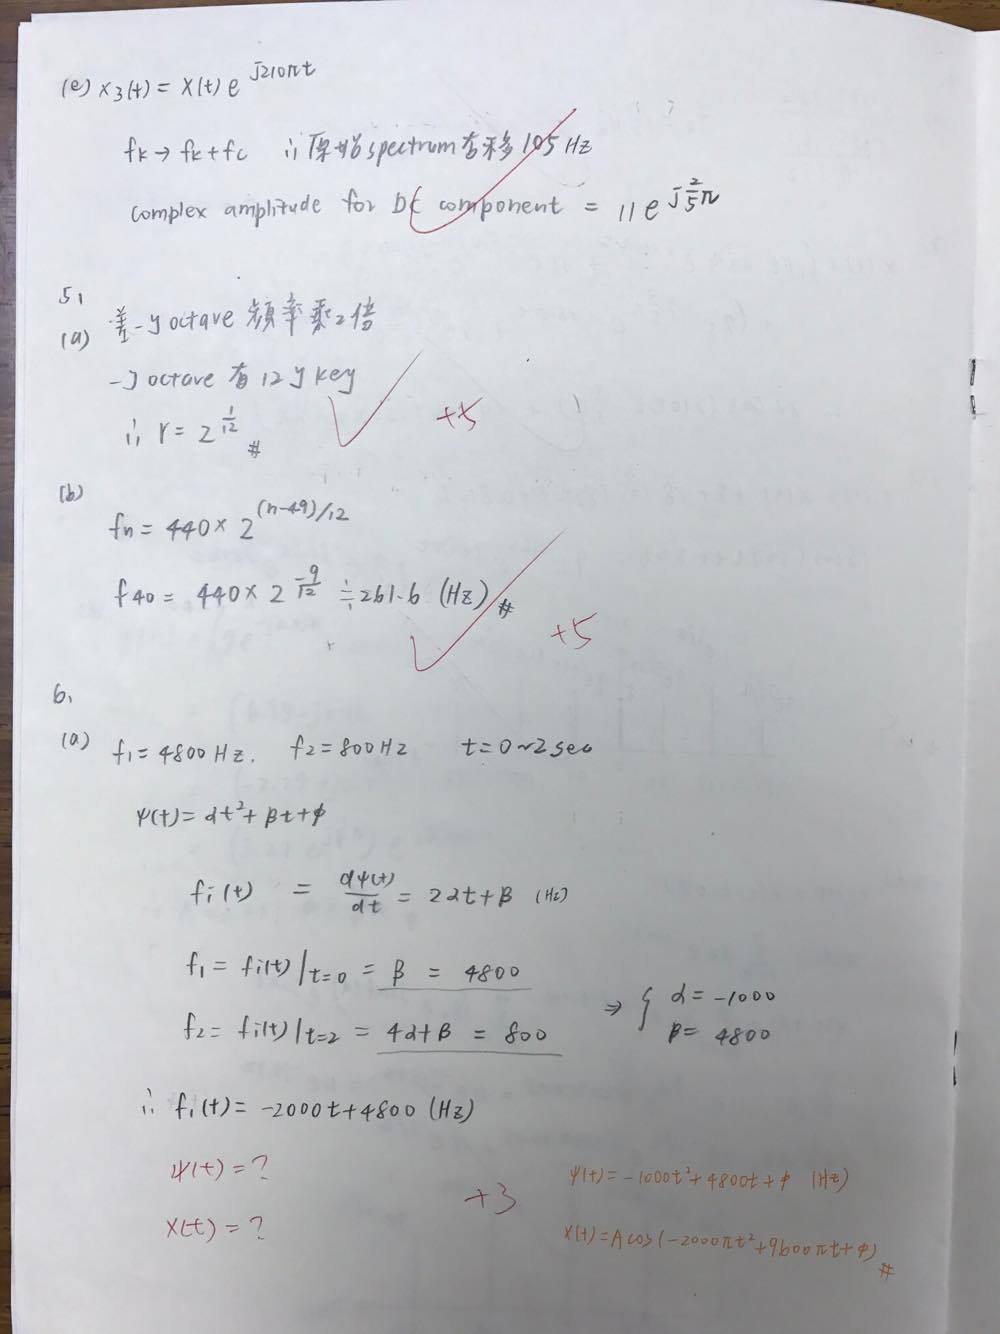 (e) x₃(t) = X(t) e^{j210πt}
fk → fk + fc ∴ 原始spectrum右移105 Hz
complex amplitude for DC component = 11 e^{j\frac{2}{5}π}
5.
(a) 差一個octave 頻率乘2倍
一個octave 有12個key
∴ r = 2^{\frac{1}{12}} #
+5
(b)
fn = 440 × 2^{(n-49)/12}
f40 = 440 × 2^{\frac{-9}{12}} ≒ 261.6 (Hz) #
+5
6.
(a) f₁ = 4800 Hz. f₂ = 800 Hz t = 0~2 sec
ψ(t) = αt² + βt + φ
fi(t) = \frac{dψ(t)}{dt} = 2αt + β (Hz)
f₁ = fi(t)|t=0 = β = 4800
f₂ = fi(t)|t=2 = 4α+β = 800
⇒ { α = -1000
β = 4800
∴ fi(t) = -2000t + 4800 (Hz)
ψ(t) = ?
X(t) = ?
+3
ψ(t) = -1000t² + 4800t + φ (Hz)
X(t) = A cos(-2000πt² + 9600πt + φ) #